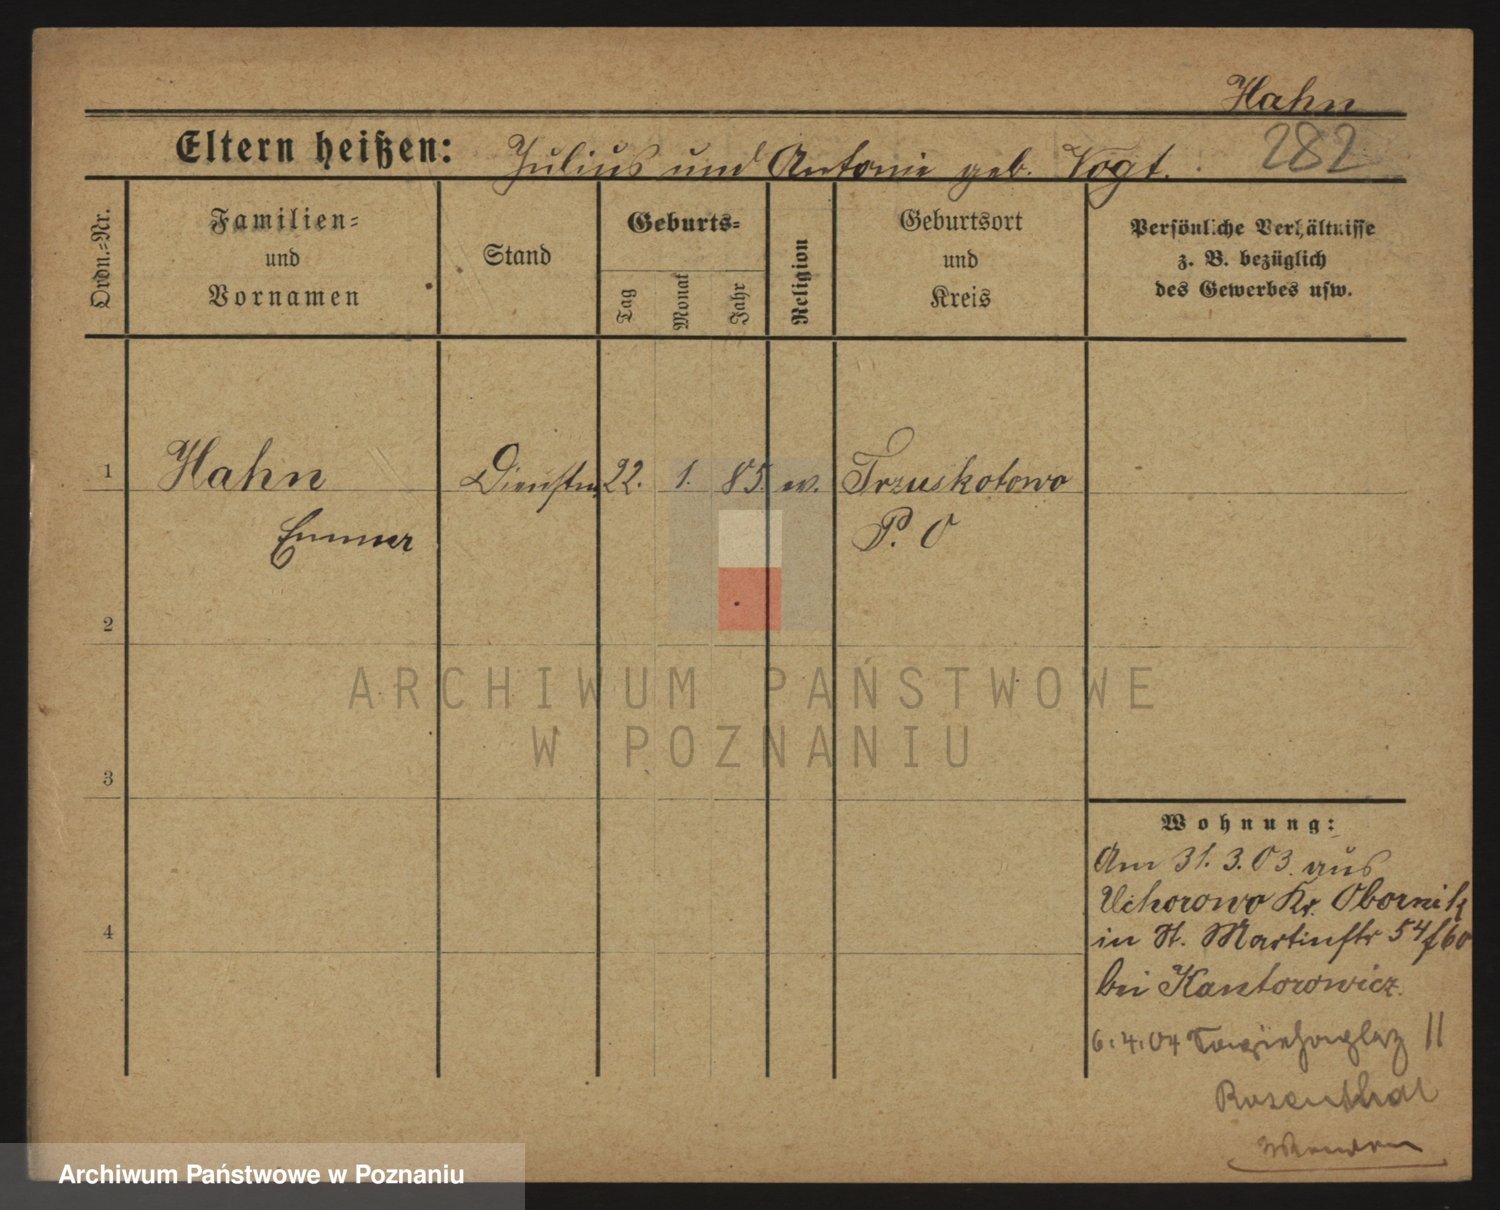 Hahn
282
Eltern heißen: Julius und Antonie geb. Vogt.
Ordn.=Nr.
Familien=
und
Vornamen
Stand
Geburts=
Tag
Monat
Jahr
Religion
Geburtsort
und
Kreis
Persönliche Verhältnisse
z. B. bezüglich
des Gewerbes usw.
1 Hahn 22. 1. 85. ev. Trzuskotowo
P. O
2
3
4
Wohnung:
Am 31. 3. 03. aus
Uchorowo Kr. Obornik
in St. Martinstr 54/60
bei Kantorowicz.
6.4.04 11
Rosenthal
ARCHIWUM PAŃSTWOWE
W POZNANIU
Archiwum Państwowe w Poznaniu